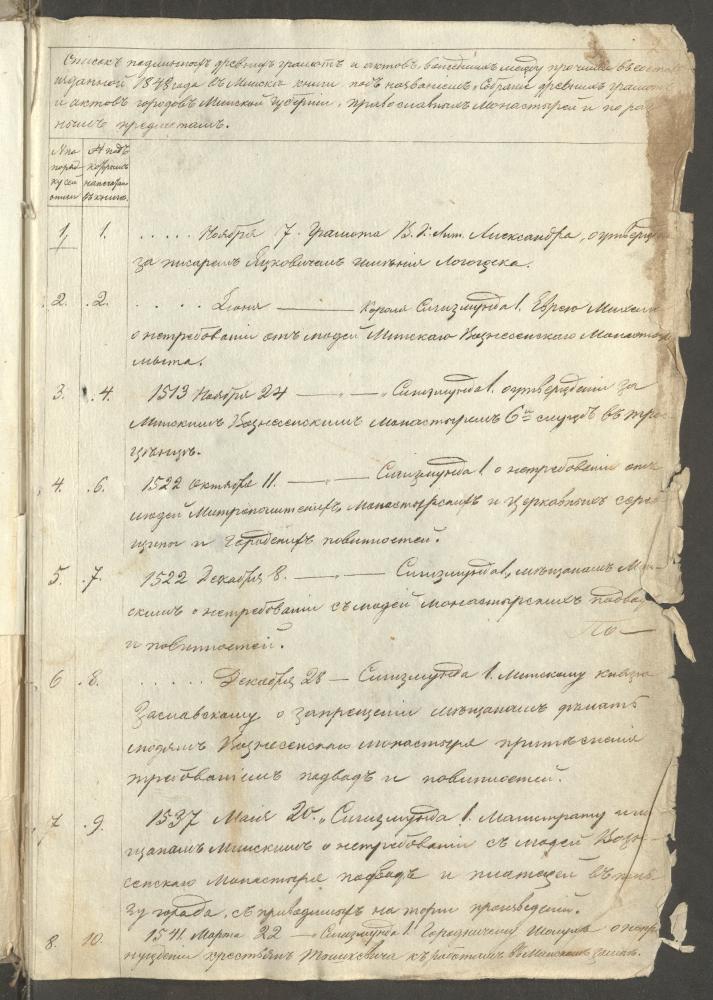 Списокъ подлинныхъ древнихъ грамотъ и актовъ, вошедшихъ между прочимъ въ составъ
изданной 1848 года въ Минскѣ книги, подъ названіемъ „Собраніе древнихъ грамотъ
и актовъ городовъ Минской губерніи, православныхъ монастырей и по раз
нымъ предметамъ.
№ по поряд ку сей описи
№ подъ которымъ напечатаны въ книгѣ.
1. 1. ..... Ноября 7. Грамота В. К. Лит. Александра, о утвержденіи
за писаремъ Яцковичемъ имѣнія Логозска.
2. 2. ..... Іюня ——— Короля Сигизмунда 1. Еврею Михелю
о нетребованіи отъ людей Минскаго Вознесенскаго Монастыря
мыта.
3. 4. 1513 Ноября 24 —„— Сигизмунда 1. о утвержденіи за
Минскимъ Вознесенскимъ Монастыремъ 6ти службъ въ Тро
4. 6. 1522 Октября 11. —„— Сигизмунда 1 о нетребованіи отъ
людей Митрополитскихъ, Монастырскихъ и церковныхъ сереб
щины и Городскихъ повинностей.
5. 7. 1522 Декабря 8. —„— Сигизмунда 1, мѣщанамъ Мин-
скимъ о нетребованіи съ людей монастырскихъ подвод
и повинностей.
По—
6 8. ..... Декабря 28 — Сигизмунда 1. Минскому князю
Заславскому о запрещеніи мѣщанамъ дѣлать
людямъ Вознесенскаго монастыря притѣсненія
требованіемъ подводъ и повинностей.
7 9. 1537 Мая 20. „ Сигизмунда 1. Магистрату и мѣ
щанамъ Минскимъ о нетребованіи съ людей Возне-
сенскаго Монастыря подводъ и платежей въ поль
зу города, съ приводимыхъ на торги произведеній.
8. 10. 1541. Марта 22 — Сигизмунда 1. Городничему о непри
нужденіи крестьянъ къ работамъ въ Минскомъ замкѣ.